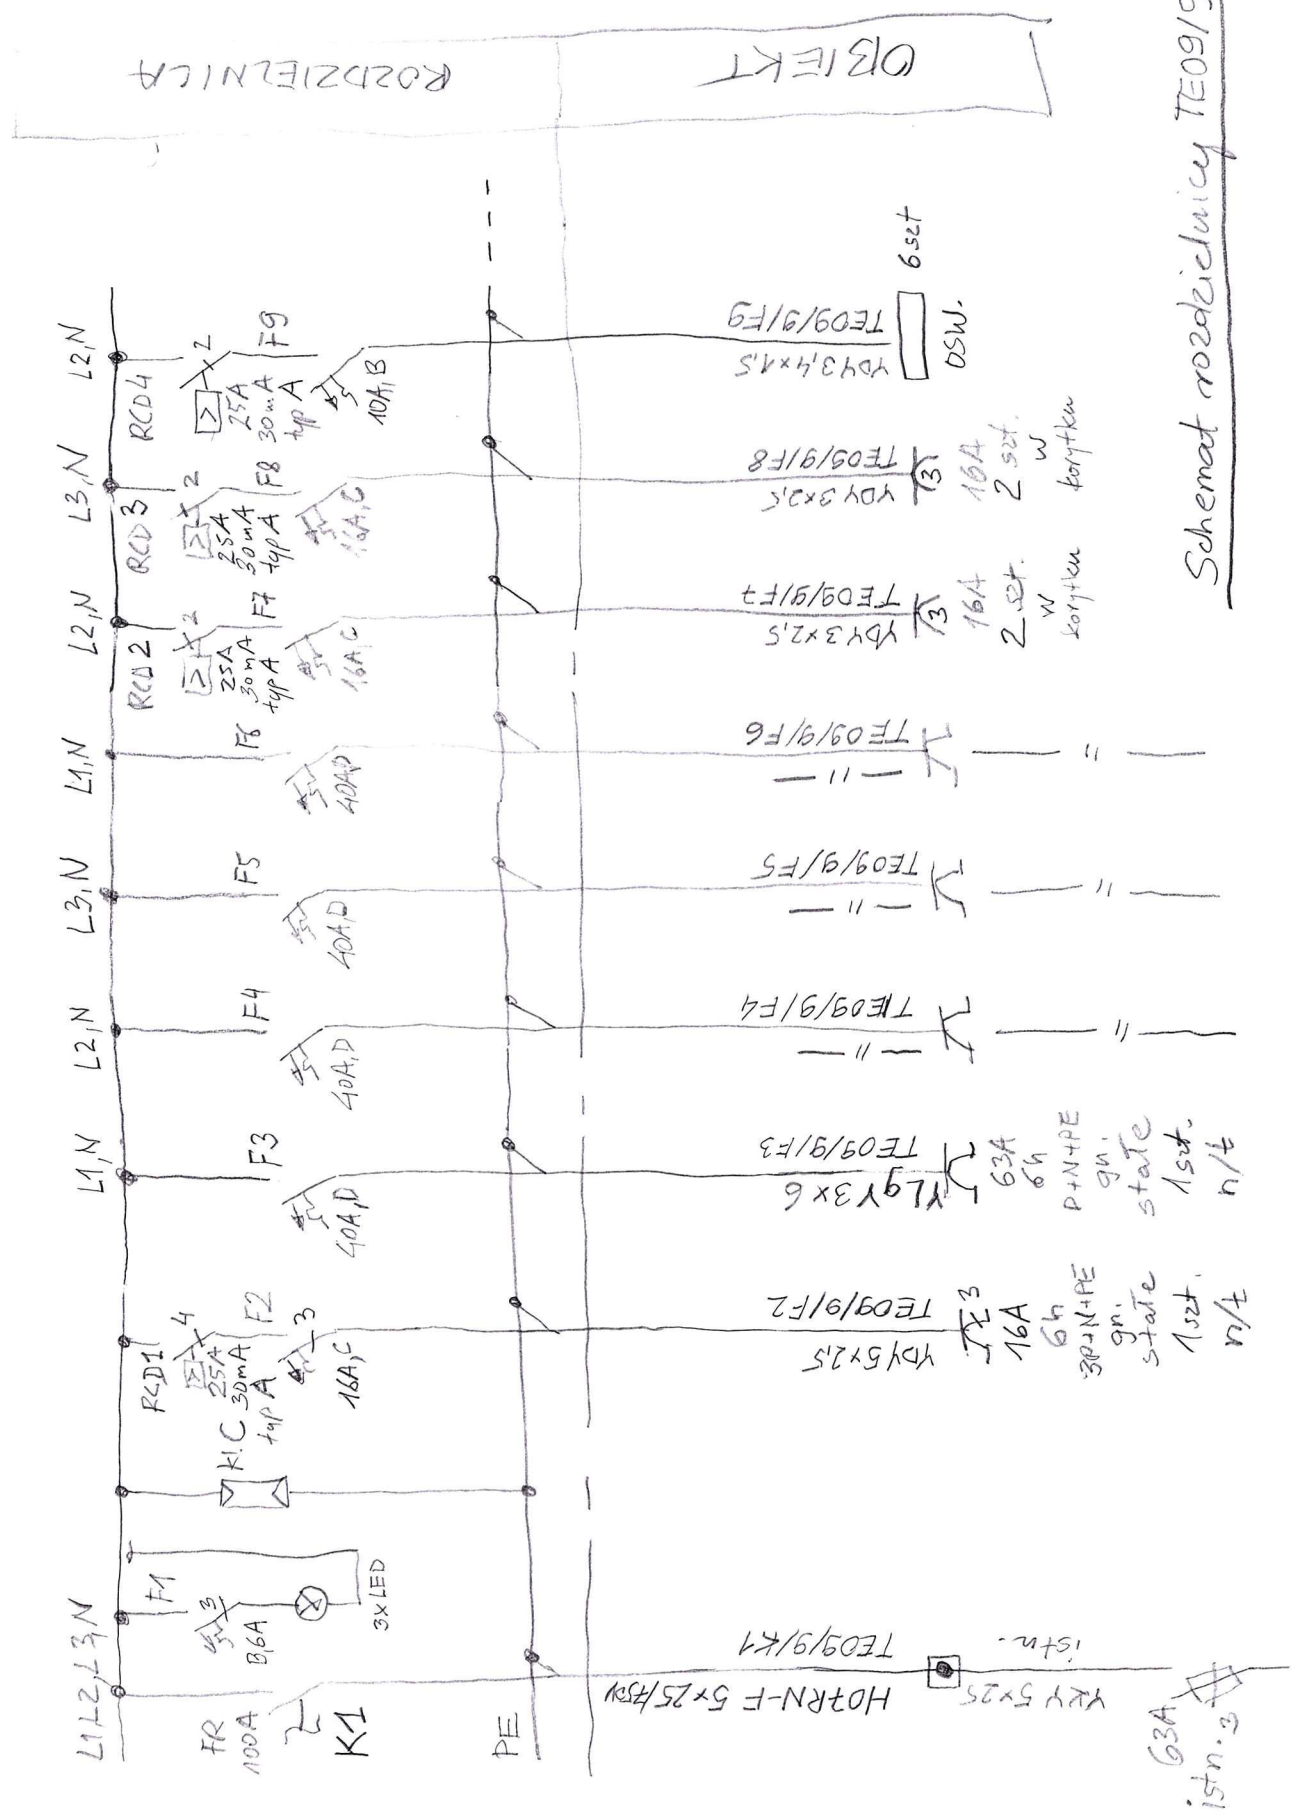 ROZDZIELNICA
OBIEKT
L1,L2,L3,N
FR
100A
K1
F1
3
B,6A
3xLED
kl.C
RCD1
4
25A
30mA
typ A
F2
3
16A,C
L1,N
F3
40A,D
L2,N
F4
40A,D
L3,N
F5
40A,D
L1,N
F6
40A,D
L2,N
RCD2
2
25A
30mA
typ A
F7
16A,C
L3,N
RCD3
2
25A
30mA
typ A
F8
16A,C
L2,N
RCD4
2
25A
30mA
typ A
F9
10A,B
PE
H07RN-F 5x25/750V
TE09/9/K1
YKY 5x25
istn.
63A
istn. 3
YDY 5x2,5
TE09/9/F2
3
16A
6h
3P+N+PE
gn.
stałe
1szt.
n/t
YLgY 3x6
TE09/9/F3
63A
6h
P+N+PE
gn.
stałe
1szt.
n/t
— 〃 —
TE09/9/F4
— 〃 —
— 〃 —
TE09/9/F5
— 〃 —
— 〃 —
TE09/9/F6
— 〃 —
YDY 3x2,5
TE09/9/F7
3
16A
2 szt.
w
korytku
YDY 3x2,5
TE09/9/F8
3
16A
2 szt.
w
korytku
YDY 3,4x1,5
TE09/9/F9
6szt
OSW.
Schemat rozdzielnicy TE09/9